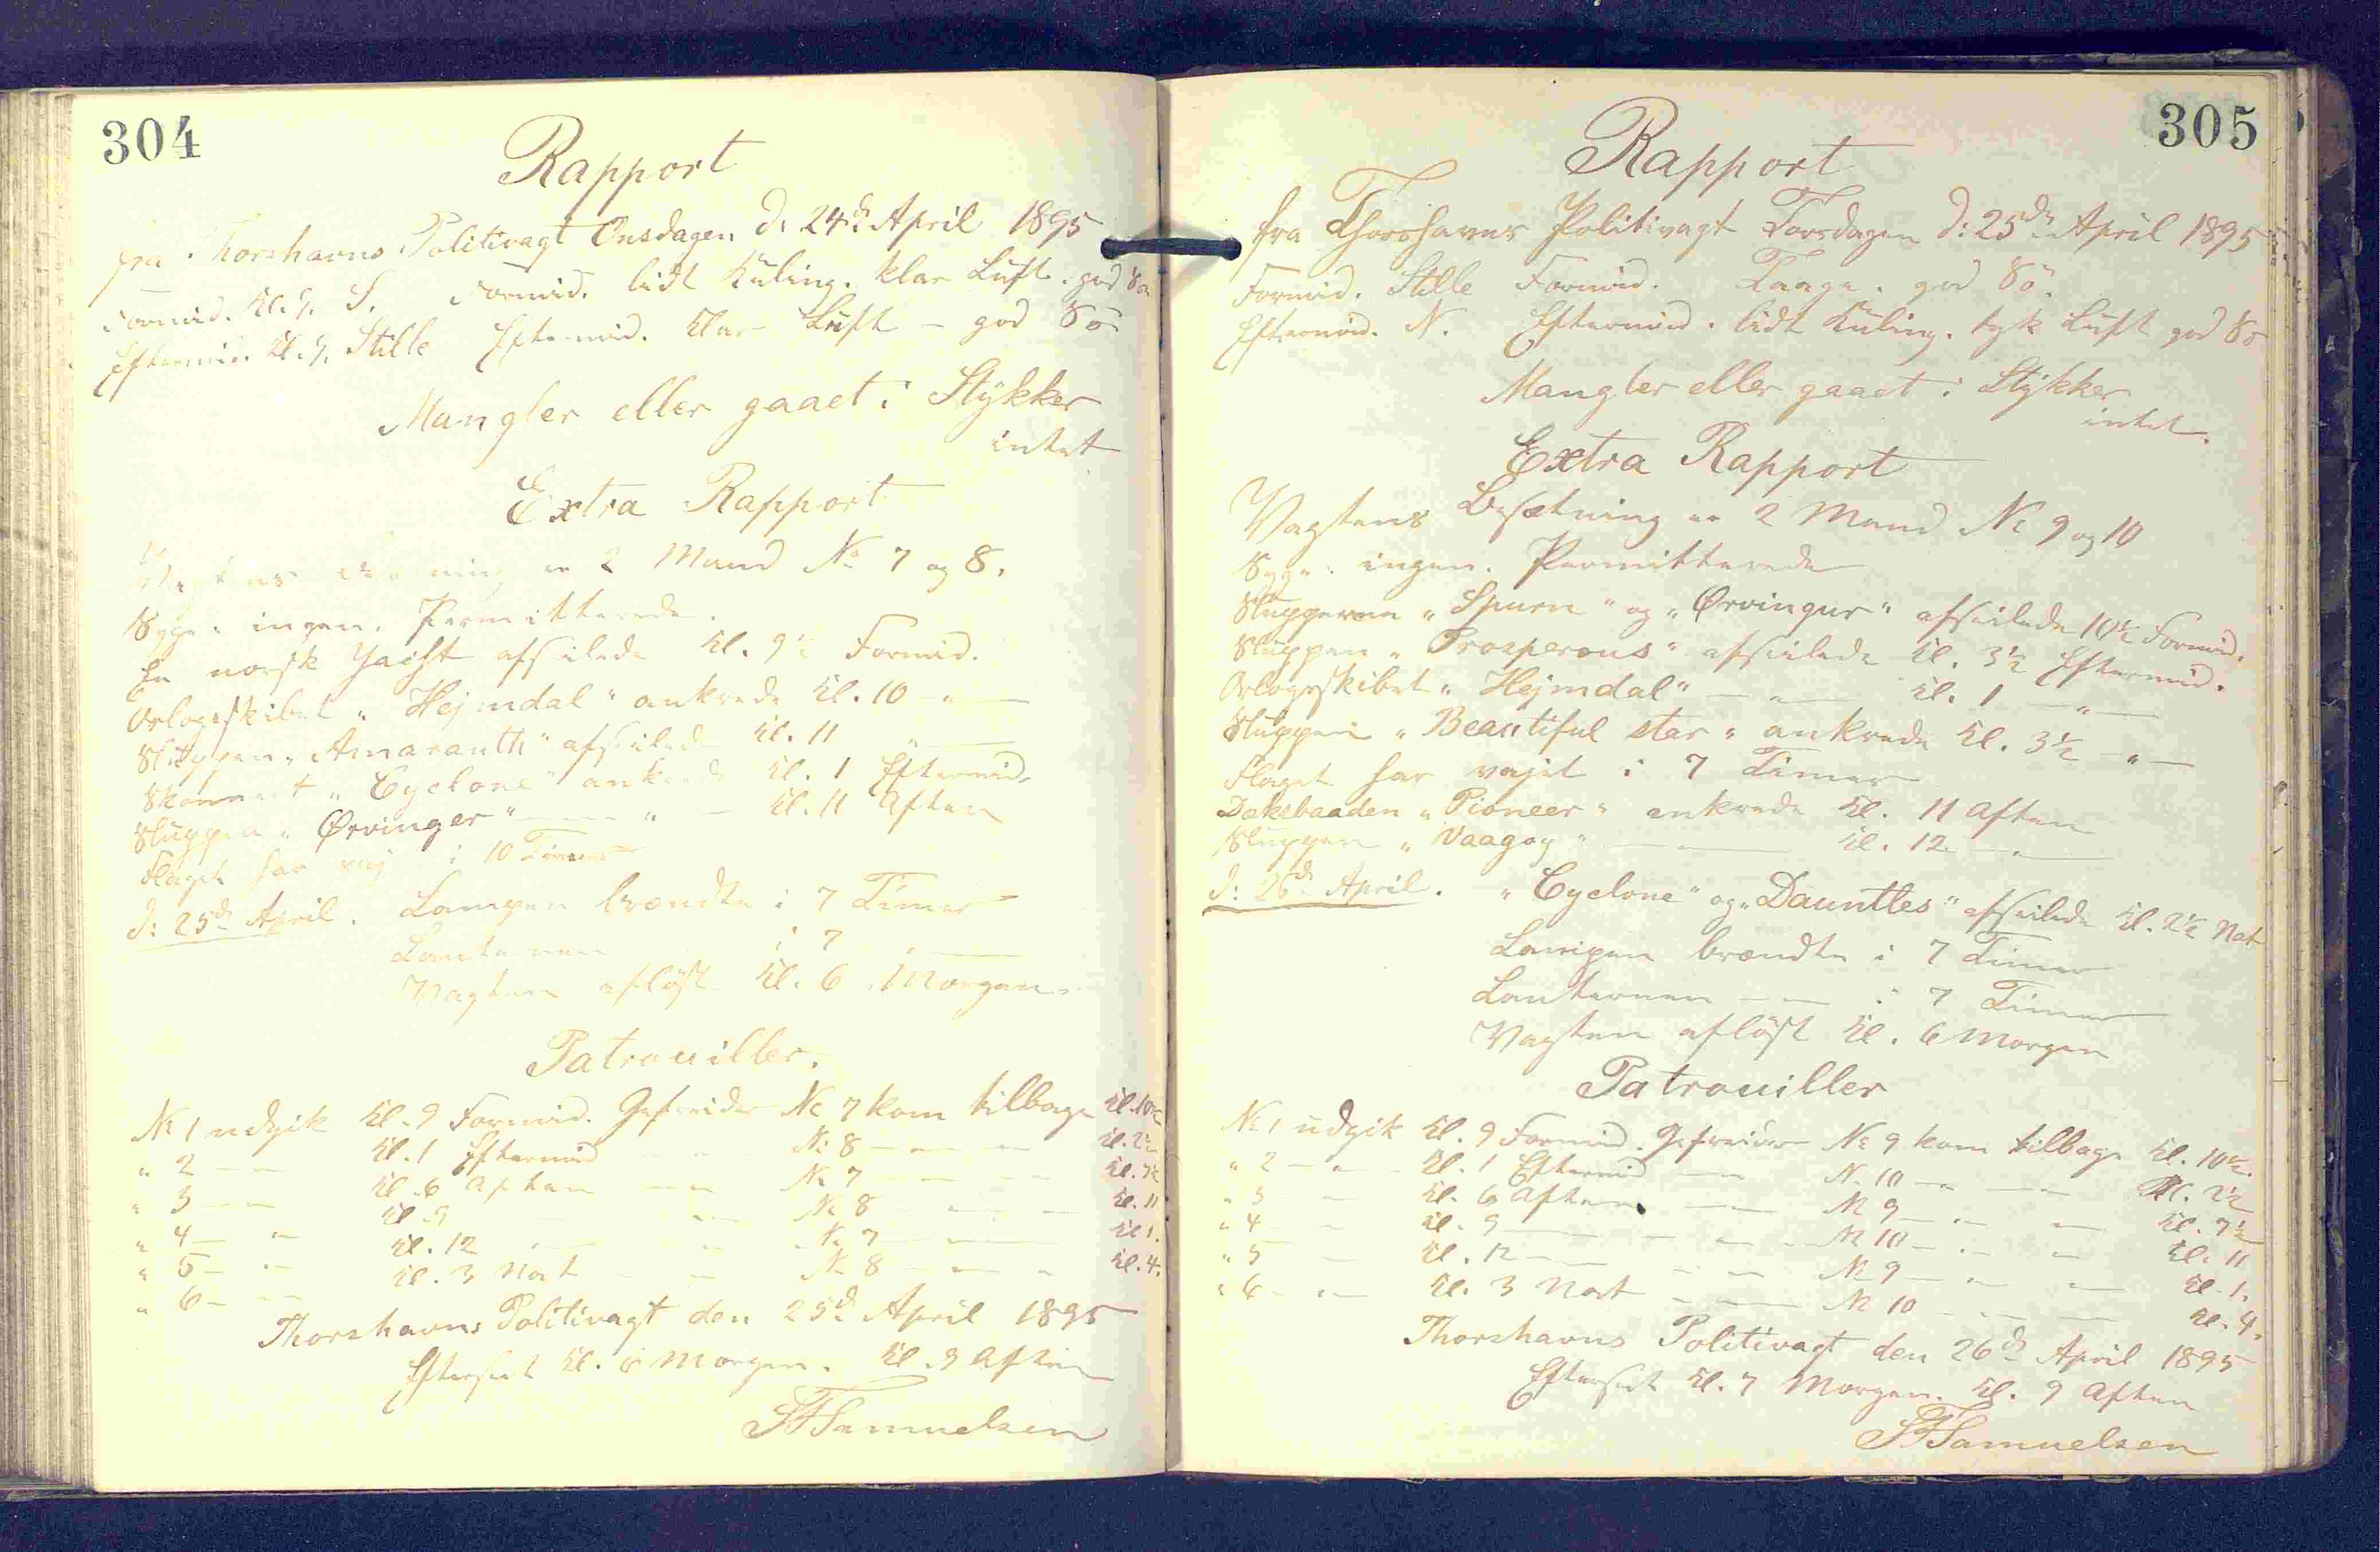 304
Rapport
fra Thorshavns Politivagt Onsdagen d: 24d: April 1895
Formid. Kl. 9. S. Formid. lidt Kuling. klar Luft. god Sö
Eftermid. Kl. 9. Stille Eftermid. klar Luft - god Sö
Mangler eller gaaet i Stÿkker
intet
Extra Rapport
Vagtens Besætning er 2 Mand No 7 og 8.
Syge: ingen. Permitterede.
En norsk Jacht afseilede Kl. 9½ Formid.
Orlogsskibet "Hejmdal" ankrede Kl. 10 — " —
Sluppen "Amaranth" afseilede Kl. 11 "
Skonnert "Cyclone" ankrede Kl. 1 Eftermid.
Sluppen "Ørvinger" — " — Kl. 11 Aften
Flaget har vaj i 10 Timer
d: 25d: April. Lampen brændte i 7 Timer
Lanternen i 7 —
Vagten aflöst Kl. 6 Morgen.
Patrouiller.
No 1 udgik Kl. 9 Formid. Gefreider No 7 kom tilbage Kl. 10½
" 2 — — Kl. 1 Eftermid — No 8 — — Kl. 2½
" 3 — — Kl. 6 Aften — No 7 — — Kl. 7½
" 4 — " Kl. 9 — No 8 — — Kl. 11
" 5 — " Kl. 12 — No 7 — — Kl. 1.
" 6 — — Kl. 3 Nat — No 8 — — Kl. 4.
Thorshavns Politivagt den 25d: April 1895
Efterseet Kl. 6 Morgen. Kl. 9 Aften
Samuelsen
305
Rapport
fra Thorshavns Politivagt Torsdagen d: 25de April 1895
Formid. Stille Formid. Taage. god Sö.
Eftermid. N. Eftermid. lidt Kuling. tyk Luft god Sö
Mangler eller gaaet i Stÿkker
intet.
Extra Rapport
Vagtens Besætning er 2 Mand No 9 og 10
Syge: ingen. Permitterede
Slupperne "Spurn" og "Ørvingur" afseilede 10½ Formid.
Sluppen "Prosperous" afseilede Kl. 3½ Eftermid.
Orlogsskibet "Hejmdal" — " — Kl. 1 — " —
Sluppen "Beautiful star" ankrede Kl. 3½ — " —
Flaget har vajet i 7 Timer
Dæksbaaden "Pioneer" ankrede Kl. 11 Aften
Sluppen "Vaagoy" — Kl. 12 — " —
d: 26d: April. "Cyclone" og "Daunttes" afseilede Kl. 2½ Nat
Lampen brændte i 7 Timer
Lanternen — — i 7 Timer
Vagten aflöst Kl. 6 Morgen
Patrouiller
No 1 udgik Kl. 9 Formid. Gefreider No 9 kom tilbage Kl. 10½.
" 2 — " — Kl. 1 Eftermid — No 10 — " — Kl. 2½
" 3 — Kl. 6 Aften — No 9 — " — Kl. 7½
" 4 — Kl. 9 — No 10 — " — Kl. 11
" 5 — Kl. 12 — No 9 — " — Kl. 1.
" 6 — " — Kl. 3 Nat — No 10 — — Kl. 4.
Thorshavns Politivagt den 26d: April 1895
Efterseet Kl. 7 Morgen. Kl. 9 Aften
Samuelsen